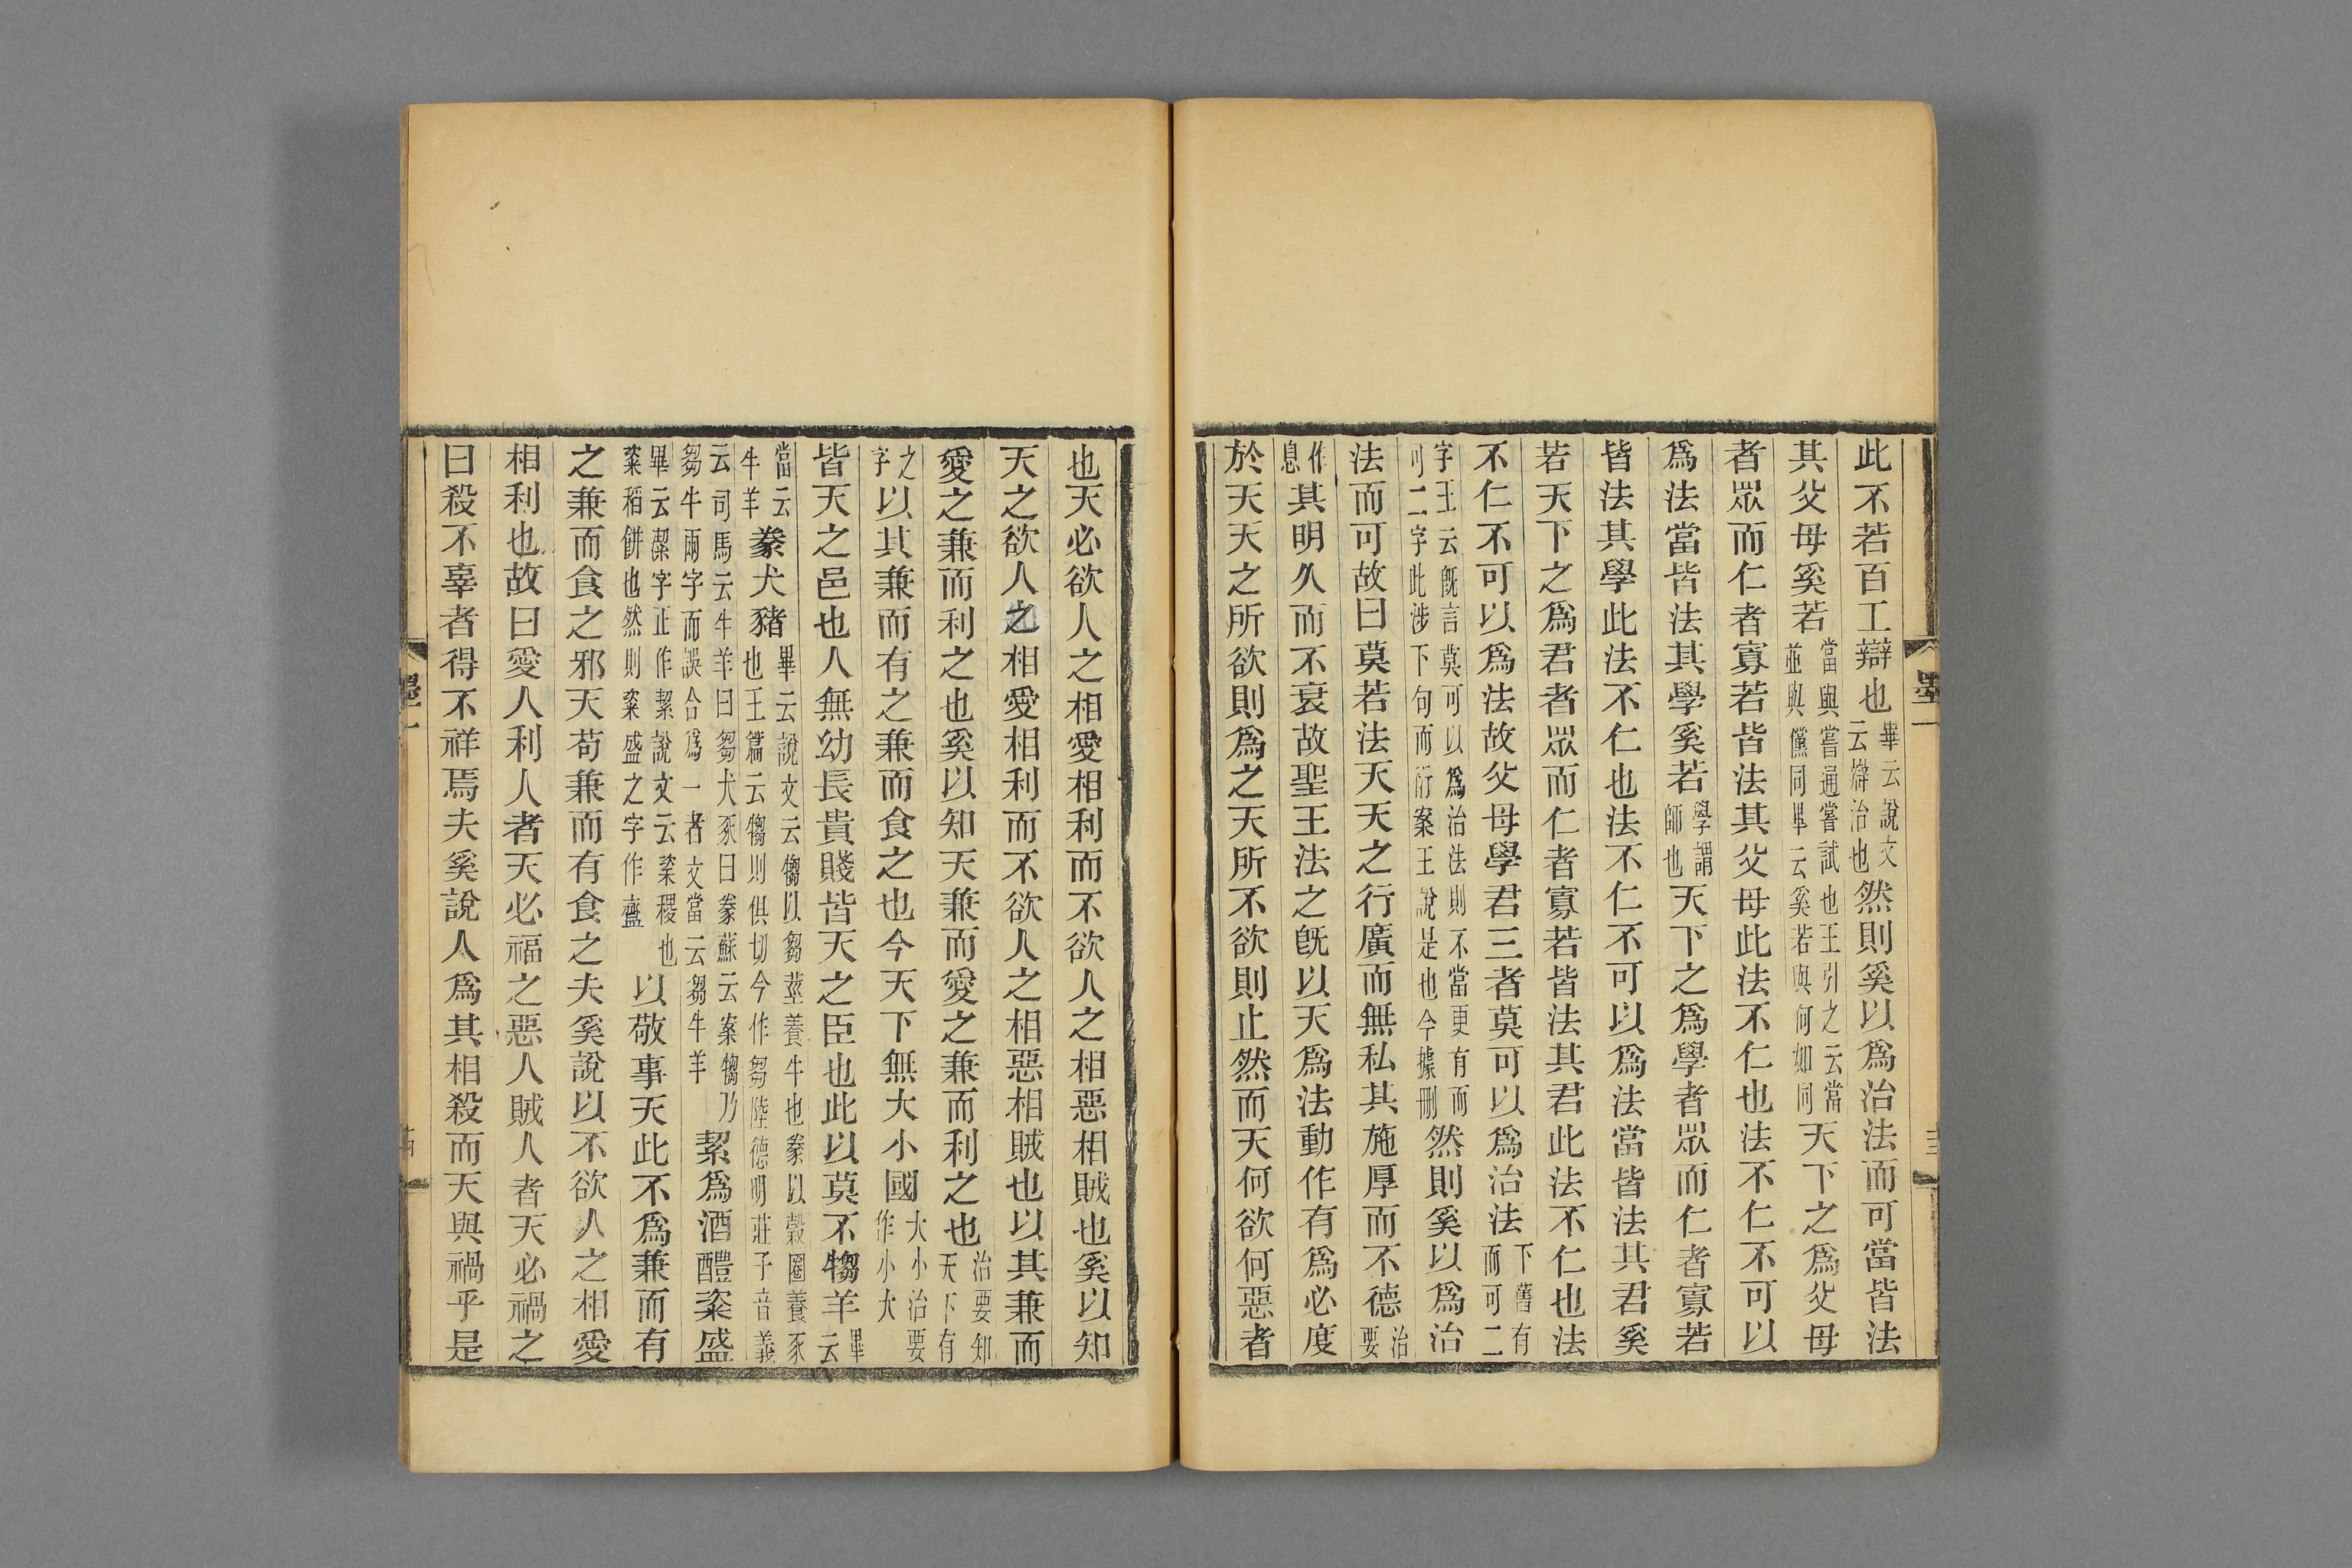 此不若百工辯也畢云說文云辯治也然則奚以爲治法而可當皆法
其父母奚若當與嘗通嘗試也王引之云當並與儻同畢云奚若與何如同天下之爲父母
者眾而仁者寡若皆法其父母此法不仁也法不仁不可以
爲法當皆法其學奚若學謂師也天下之爲學者眾而仁者寡若
皆法其學此法不仁也法不仁不可以爲法當皆法其君奚
若天下之爲君者眾而仁者寡若皆法其君此法不仁也法
不仁不可以爲法故父母學君三者莫可以爲治法下舊有而可二
字王云旣言莫可以爲治法則不當更有而可二字此涉下句而衍案王說是也今據刪然則奚以爲治
法而可故曰莫若法天天之行廣而無私其施厚而不德治要
作息其明久而不衰故聖王法之旣以天爲法動作有爲必度
於天天之所欲則爲之天所不欲則止然而天何欲何惡者
墨一
也天必欲人之相愛相利而不欲人之相惡相賊也奚以知
天之欲人之相愛相利而不欲人之相惡相賊也以其兼而
愛之兼而利之也奚以知天兼而愛之兼而利之也治要知天下有
之字以其兼而有之兼而食之也今天下無大小國大小治要作小大
皆天之邑也人無幼長貴賤皆天之臣也此以莫不犓羊畢云
當云牛羊豢犬豬畢云說文云犓以芻莝養牛也豢以穀圈養豕也玉篇云犓則俱切今作芻陸德明莊子音義
云司馬云牛羊曰芻犬豕曰豢蘇云案犓乃芻牛兩字而誤合爲一者文當云芻牛羊絜爲酒醴粢盛
畢云潔字正作絜說文云粢稷也粢稻餅也然則粢盛之字作齍以敬事天此不爲兼而有
之兼而食之邪天苟兼而有食之夫奚說以不欲人之相愛
相利也故曰愛人利人者天必福之惡人賊人者天必禍之
曰殺不辜者得不祥焉夫奚說人爲其相殺而天與禍乎是
墨一